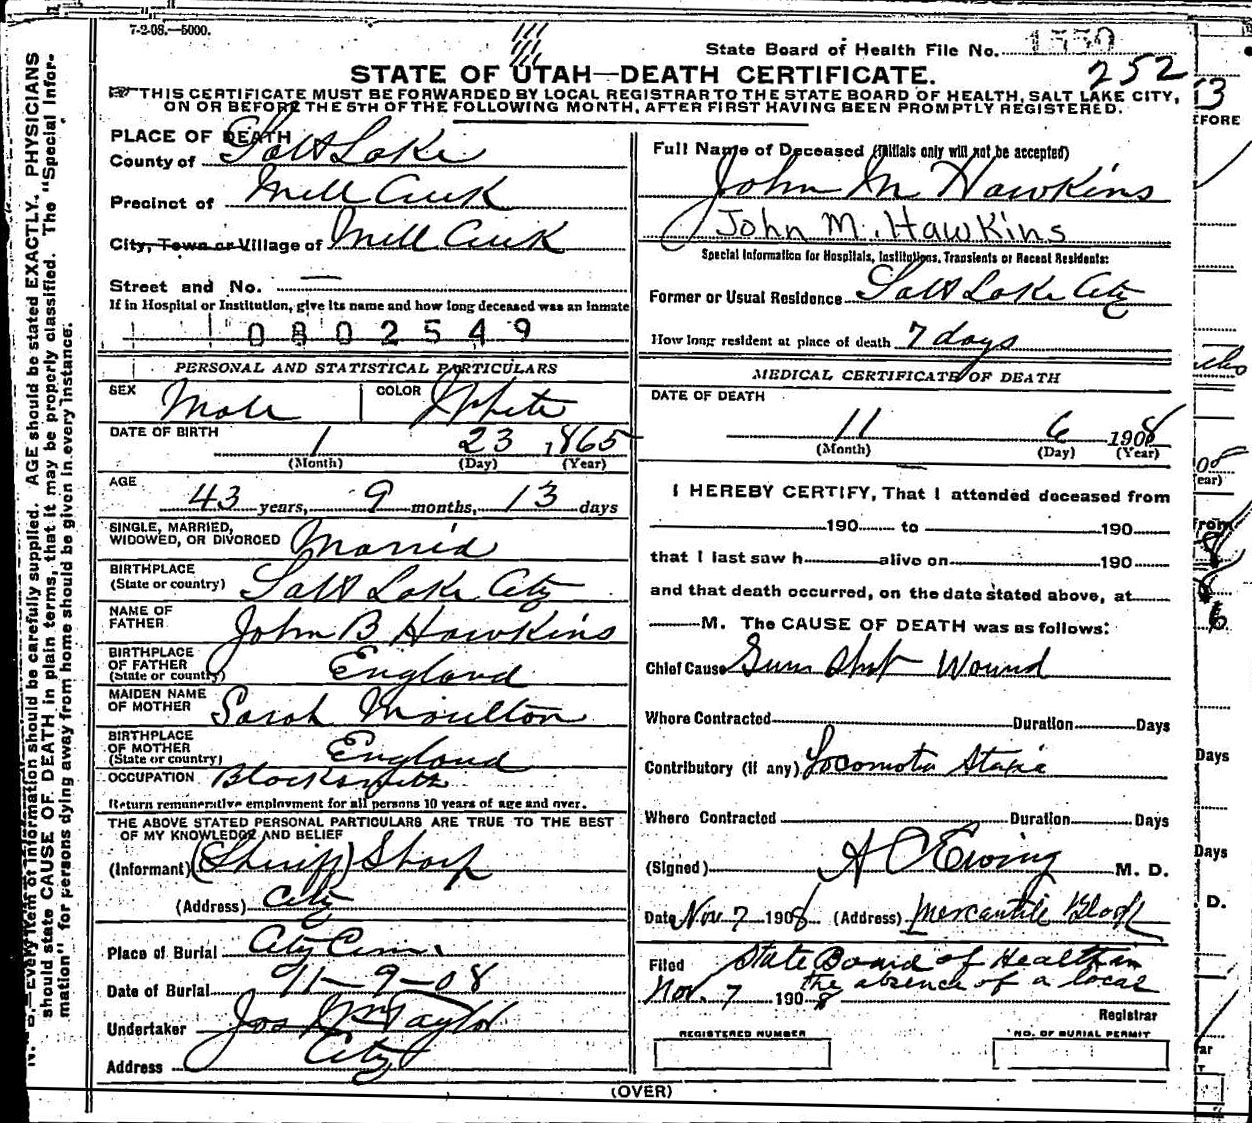 7-2-08.—5000.
State Board of Health File No. 1550
252
STATE OF UTAH—DEATH CERTIFICATE.
THIS CERTIFICATE MUST BE FORWARDED BY LOCAL REGISTRAR TO THE STATE BOARD OF HEALTH, SALT LAKE CITY,
ON OR BEFORE THE 5TH OF THE FOLLOWING MONTH, AFTER FIRST HAVING BEEN PROMPTLY REGISTERED.
N. B.—Every item of information should be carefully supplied. AGE should be stated EXACTLY. PHYSICIANS
should state CAUSE OF DEATH in plain terms, that it may be properly classified. The "Special Infor-
mation" for persons dying away from home should be given in every instance.
PLACE OF DEATH
County of Salt Lake
Precinct of Mill Creek
City, Town or Village of Mill Creek
Street and No. —
If in Hospital or Institution, give its name and how long deceased was an inmate
0802549
PERSONAL AND STATISTICAL PARTICULARS
SEX Male COLOR White
DATE OF BIRTH 1 23 1865
(Month) (Day) (Year)
AGE 43 years, 9 months, 13 days
SINGLE, MARRIED,
WIDOWED, OR DIVORCED Married
BIRTHPLACE
(State or country) Salt Lake City
NAME OF
FATHER John B Hawkins
BIRTHPLACE
OF FATHER
(State or country) England
MAIDEN NAME
OF MOTHER Sarah Moulton
BIRTHPLACE
OF MOTHER
(State or country) England
OCCUPATION Blacksmith
Return remunerative employment for all persons 10 years of age and over.
THE ABOVE STATED PERSONAL PARTICULARS ARE TRUE TO THE BEST
OF MY KNOWLEDGE AND BELIEF
(Informant) (Sheriff) Sharp
(Address) City
Place of Burial City Cem.
Date of Burial 11-9-08
Undertaker Jos Wm Taylor
Address City
Full Name of Deceased (Initials only will not be accepted)
John M Hawkins
John M. Hawkins
Special Information for Hospitals, Institutions, Transients or Recent Residents:
Former or Usual Residence Salt Lake City
How long resident at place of death 7 days
MEDICAL CERTIFICATE OF DEATH
DATE OF DEATH
11 6 1908
(Month) (Day) (Year)
I HEREBY CERTIFY, That I attended deceased from
190 to 190
that I last saw h alive on 190
and that death occurred, on the date stated above, at
M. The CAUSE OF DEATH was as follows:
Chief Cause Gun Shot Wound
Where Contracted Duration Days
Contributory (if any) Locomoto Ataxia
Where Contracted Duration Days
(Signed) A C Ewing M. D.
Date Nov 7 1908 (Address) Mercantile Block
Filed State Board of Health in
the absence of a local
Nov. 7 1908
Registrar
REGISTERED NUMBER
NO. OF BURIAL PERMIT
(OVER)
3
EFORE
08
ear)
from
Days
Days
D.